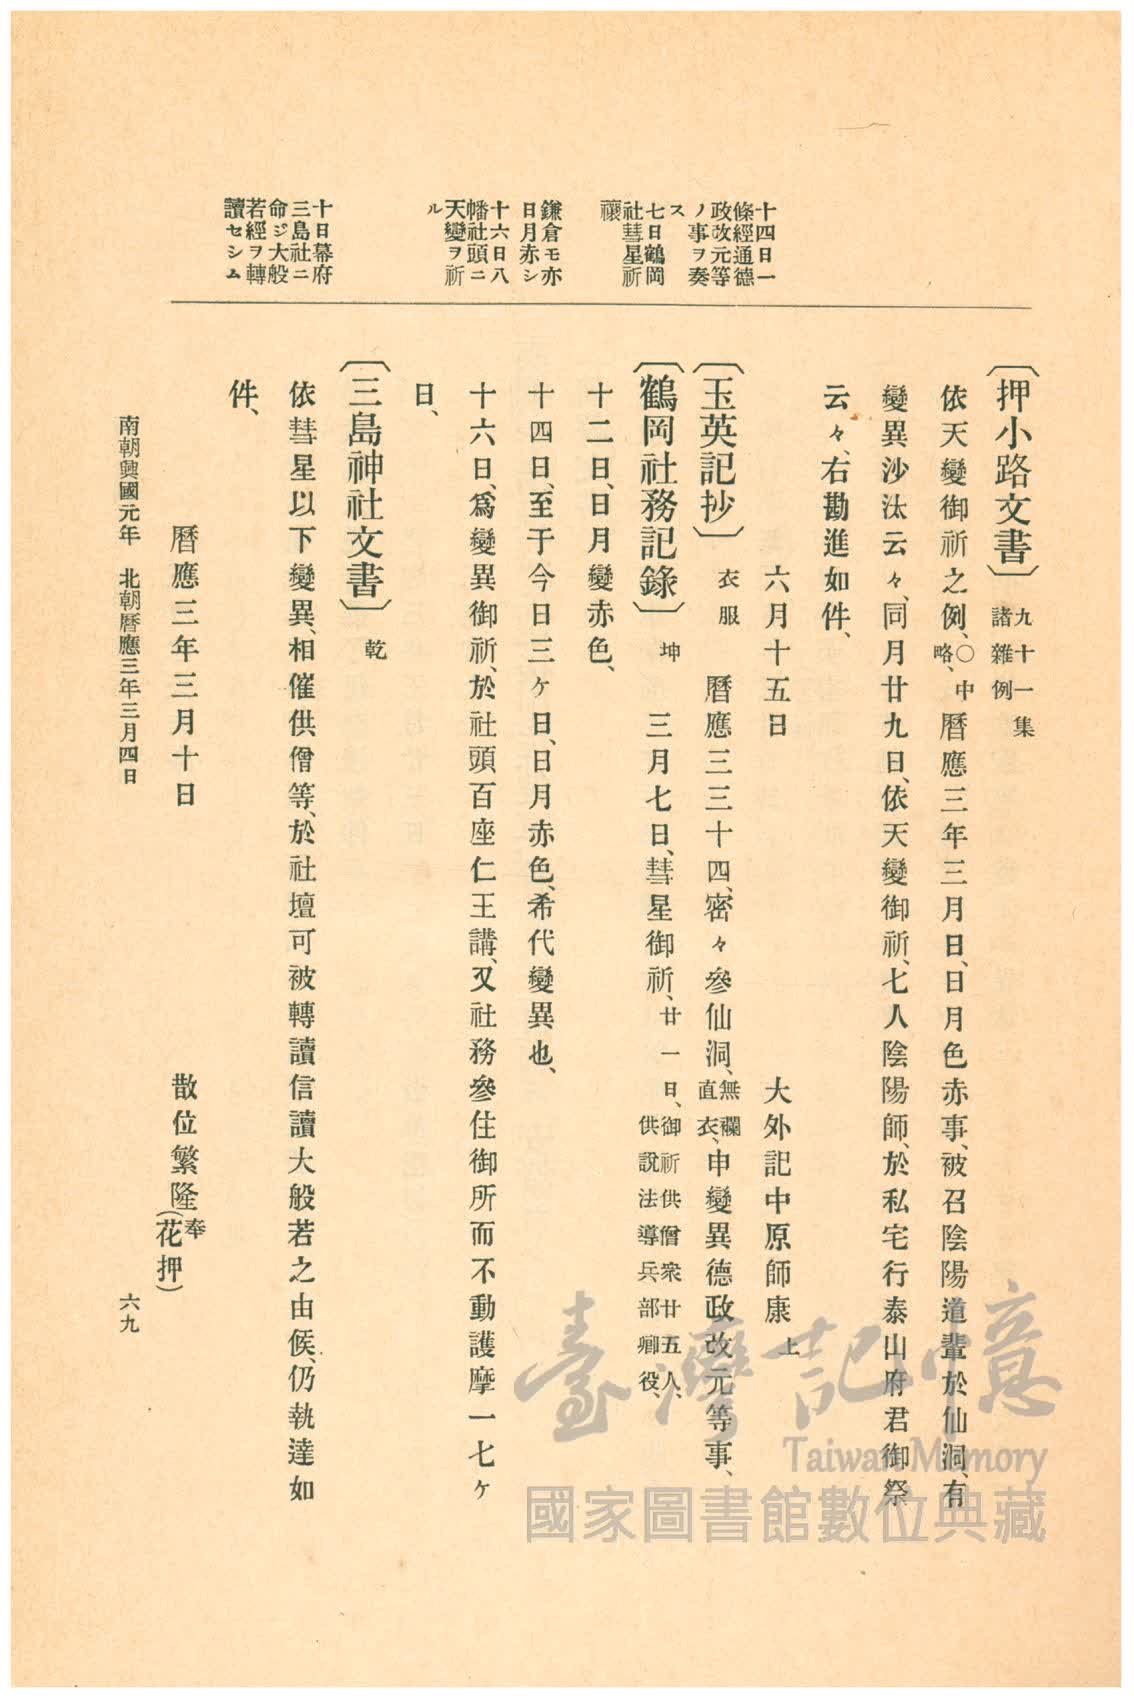 十四日一
條經通德
政改元等
ノ事ヲ奏
ス
七日鶴岡
社彗星祈
禳
鎌倉モ亦
日月赤シ
十六日八
幡社頭ニ
天變ヲ祈
ル
十日幕府
三島社ニ
命ジ大般
若經ヲ轉
讀セシム
〔押小路文書〕九十一集
諸雜例
依天變御祈之例、○中略、曆應三年三月日、日月色赤事、被召陰陽道輩於仙洞、有
變異沙汰云々、同月廿九日、依天變御祈、七人陰陽師、於私宅行泰山府君御祭
云々、右勘進如件、
六月十五日 大外記中原師康上
〔玉英記抄〕衣服 曆應三三十四、密々參仙洞、無襴直衣、申變異德政改元等事、
〔鶴岡社務記錄〕坤 三月七日、彗星御祈、廿一日、御祈供僧衆廿五人、供說法導兵部卿役、
十二日、日月變赤色、
十四日、至于今日三ヶ日、日月赤色、希代變異也、
十六日、爲變異御祈、於社頭百座仁王講、又社務參住御所而不動護摩一七ヶ
日、
〔三島神社文書〕乾
依彗星以下變異、相催供僧等、於社壇可被轉讀信讀大般若之由候、仍執達如
件、
曆應三年三月十日 散位繁隆奉(花押)
南朝興國元年 北朝曆應三年三月四日 六九
臺灣記憶
Taiwan Memory
國家圖書館數位典藏